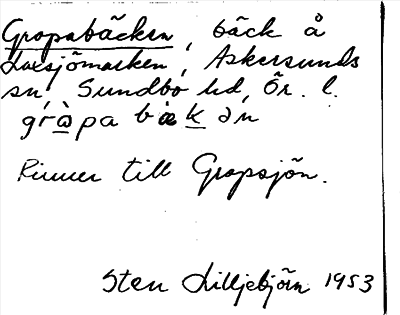 Gropabäcken, bäck å
Laxsjömarken, Askersunds
sn, Sundbo hd, Ör. l.
gròpa bækən
Rinner till Gropsjön.
Sten Lilljebjörn 1953